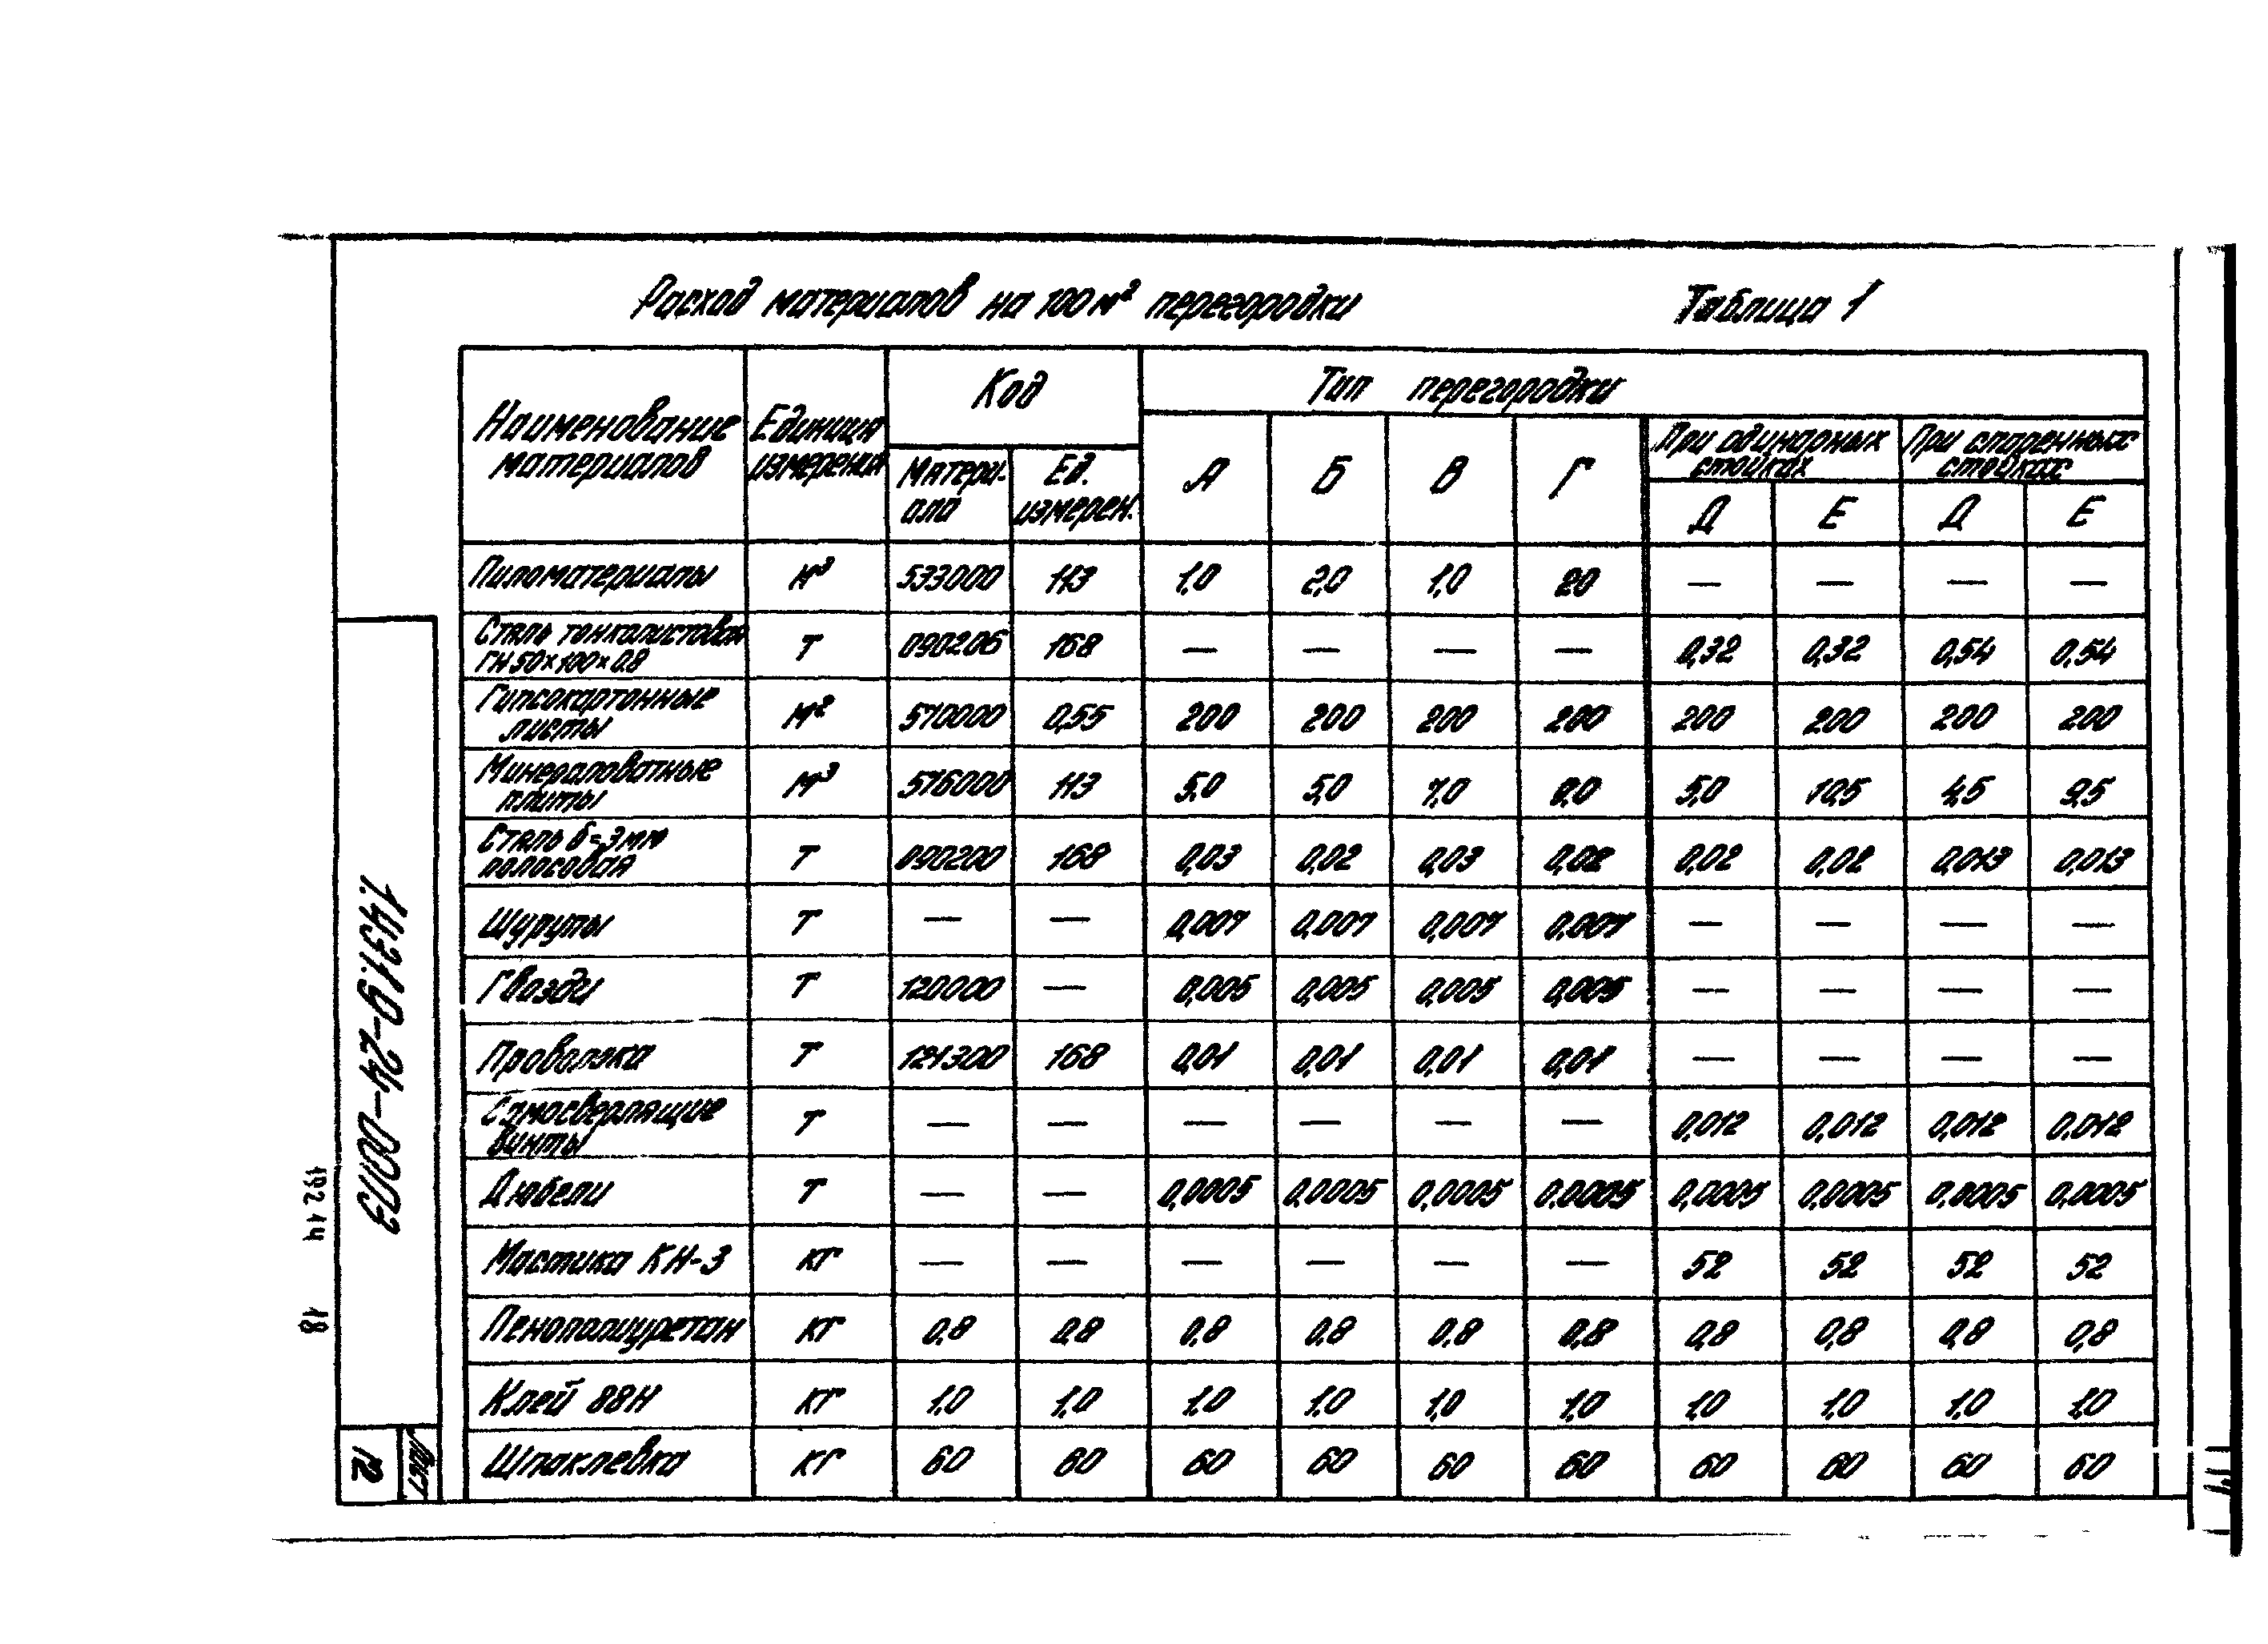 Расход материалов на 100 м² перегородки Таблица 1
Наименование материалов Единица измерения Код Тип перегородки
Материала Ед. измерен. А Б В Г При одинарных стойках При спаренных стойках
Д Е Д Е
Пиломатериалы м³ 533000 113 1,0 2,0 1,0 20 — — — —
Сталь тонколистовая ГН 50×100×0.8 т 090206 168 — — — — 0,32 0,32 0,54 0,54
Гипсокартонные листы м² 570000 0,55 200 200 200 200 200 200 200 200
Минераловатные плиты м³ 576000 113 5,0 5,0 7,0 5,0 10,5 4,5 9,5
Сталь б=3мм полосовая т 090200 168 0,03 0,02 0,03 0,02 0,02 0,02 0,013 0,013
Шурупы т — — 0,007 0,007 0,007 0,007 — — — —
Гвозди т 120000 — 0,005 0,005 0,005 0,005 — — — —
Проволока т 121300 168 0,01 0,01 0,01 0,01 — — — —
Самосверлящие винты т — — — — — — 0,012 0,012 0,012 0,012
Дюбели т — — 0,0005 0,0005 0,0005 0.0005 0,0005 0,0005 0,0005 0,0005
Мастика КН-3 кг — — — — — — 52 52 52 52
Пенополиуретан кг 0,8 0,8 0,8 0,8 0,8 0,8 0,8 0,8 0,8 0,8
Клей 88Н кг 1,0 1,0 1,0 1,0 1,0 1,0 1,0 1,0 1,0 1,0
Шпаклевка кг 60 60 60 60 60 60 60 60 60 60
1.431.9-24-00ПЗ
Лист
12
19244 18